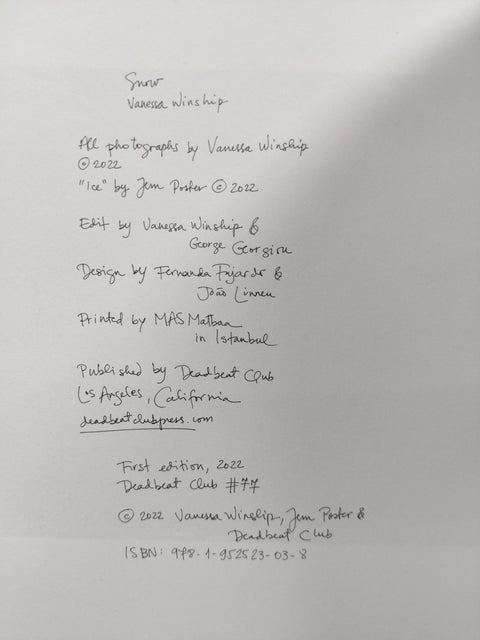 Snow
Vanessa Winship
All photographs by Vanessa Winship
© 2022
"Ice" by Jem Poster © 2022
Edit by Vanessa Winship &
George Georgiou
Design by Fernanda Fajardo &
João Linneu
Printed by MAS Matbaa
in Istanbul
Published by Deadbeat Club
Los Angeles, California
deadbeatclubpress.com
First edition, 2022
Deadbeat Club #77
© 2022 Vanessa Winship, Jem Poster &
Deadbeat Club
ISBN: 978-1-952523-03-8